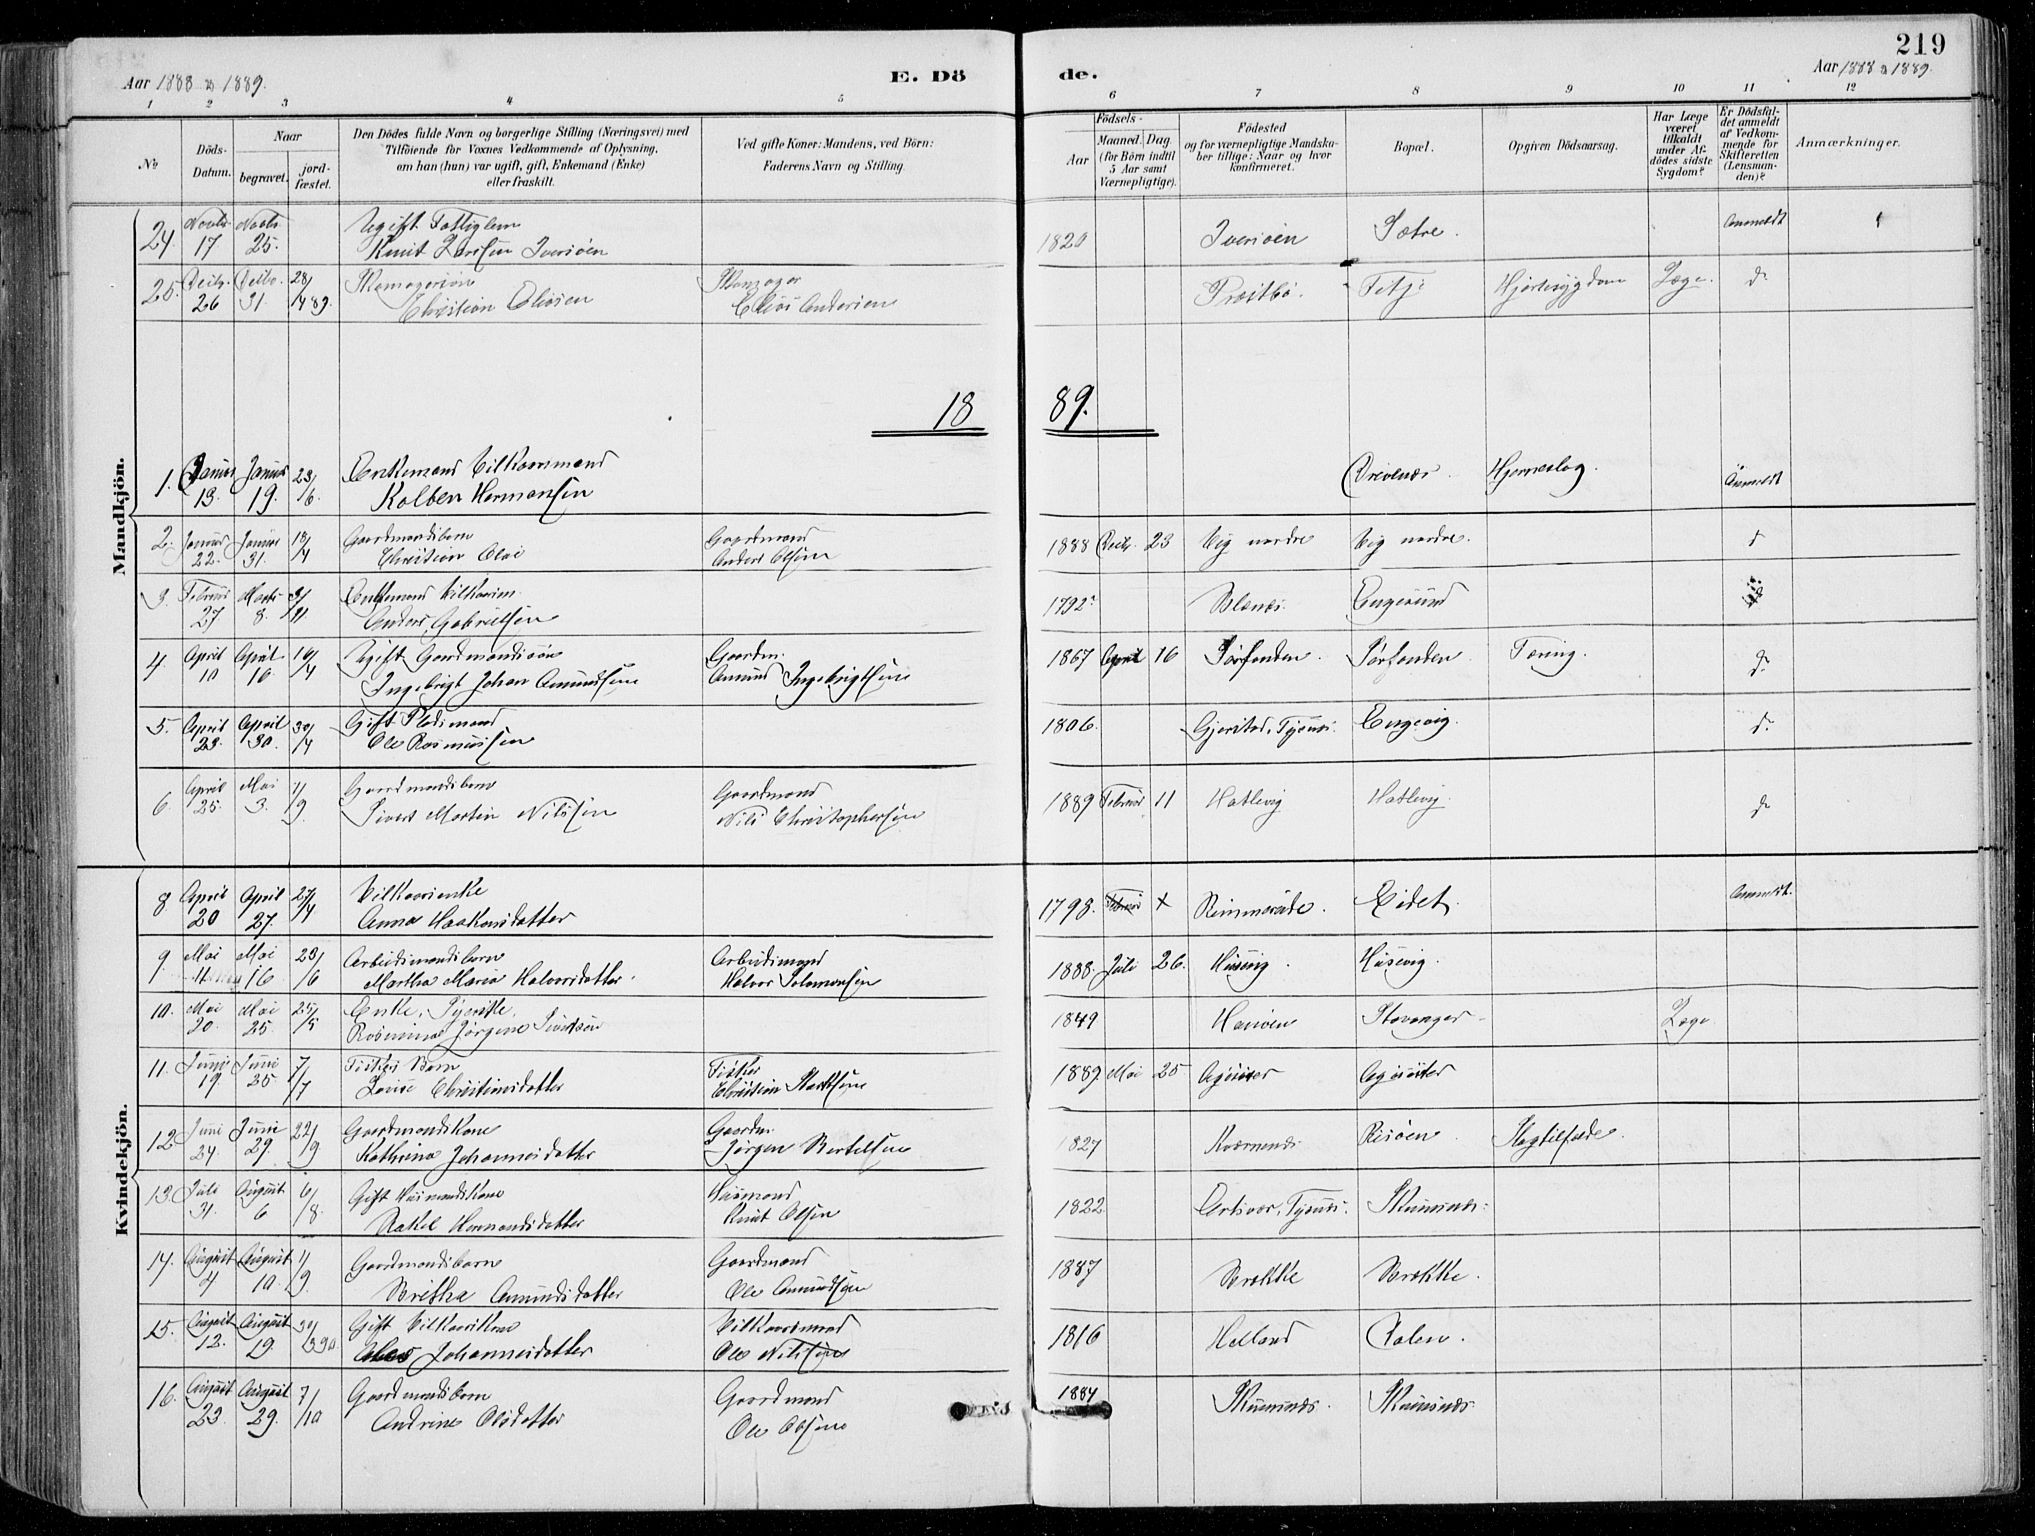 219
Aar 1888 & 1889.
E. Dö
de.
Aar 1888 & 1889.
1 2 3 4 5 6 7 8 9 10 11 12
No
Döds-Datum.
Naar
begravet.
jord-fæstet.
Den Dödes fulde Navn og borgerlige Stilling (Næringsvei) med
Tilföiende for Voxnes Vedkommende af Oplysning,
om han (hun) var ugift, gift, Enkemand (Enke)
eller fraskilt.
Ved gifte Koner: Mandens, ved Börn:
Faderens Navn og Stilling.
Födsels-
Aar
Maaned. Dag
(for Börn indtil
5 Aar samt
Værnepligtige).
Födested
og for værnepligtige Mandska-
ber tillige: Naar og hvor
konfirmeret.
Bopæl.
Opgiven Dödsaarsag.
Har Læge
været
tilkaldt
under Af-
dödes sidste
Sygdom?
Er Dödsfal-
det anmeldt
af Vedkom-
mende for
Skifteretten
(Lensman-
den)?
Anmærkninger.
Mandkjön.
24. Novbr. 17 Novbr. 25. Ugift Fattiglem
Knut Larssen Iversöen 1820 Iversöen Sætre. Anmeldt
25. Decbr. 26 Decbr. 31. 28/1 89.
Christian Eliasen Elias Andersen Præstbö. Hjertesygdom Læge. do
18 89.
1. Januar 13. Januar 19. 23/6 Enkemand Vilkaarmand
Kolben Hermansen Drevenæs. Hjerneslag. Anmeldt
2. Januar 22. Januar 31. 13/4 Gaardmandsbarn Gaardmand
Christian Olai Anders Olsen 1888 Decbr. 23 Vig nordre Vig nordre. do
3. Februar 27 Marts 8. Enkemand Vilkaarm.
Anders Gabrielsen 1792 Engesund
4. April 10 April 16. 16/4 Ugift Gaardmandssön Gaardm.
Ingebrigt Johan Amundsen Amund Ingebrigtsen 1867 April 16 Sörfonden. Sörfonden. Tæring. do
5. April 23. April 30. 30/4 Gift Pladsmand
Ole Rasmussen 1806. Gjerstad, Tysnæs. Engevig. do
6. April 25. Mai 3. 1/9 Gaardmandsbarn Gaardmand
Sivert Martin Nilssen Nils Christophersen 1889 Februar 11 Hatlevig Hatlevig. do
Kvindekjön.
8 April 20 April 27. 27/4 Vilkaarsenke
Anna Haakonsdatter 1798. Februar x Rimmereide. Eidet. Anmeldt.
9. Mai Mai 16 23/6 Arbeidsmandsbarn Arbeidsmand
Martha Maria Halvorsdatter. Halvor Salomonsen 1888. Juli 26. Husevig. Husevig.
10. Mai 20. Mai 25. 25/5 Enke,
Rasmine Jørgine 1849 Stavanger Læge
11. Juni 19. Juni 25. 7/7 Fiskers Barn Fisker
Lovise Christiansdatter Christian 1889. Mai 25 Agdester Agdester
12 Juni 24. Juni 29. 22/9 Gaardmandskone Gaardm.
Kathrina Johannesdatter Jørgen Bertelsen 1827 Kværnenes Risöen Slagtilfælde.
13. Juli 31. August 6 6/8. Gift Husmandskone Husmand
Rakel Hermandsdatter Knut Olsen 1822. Tysnæs.
14. August 4 August 10. 1/9. Gaardmandsbarn Gaardmand
Britha Amundsdatter Ole Amundsen 1887 Brekke Brekke.
15. August 13. August 19. Gift Vilkaarskone Vilkaarsmand
Johannesdatter Ole Nilssen 1816 Helland
16. August 23. August 29. 7/10 Gaardmandsbarn Gaardmand
Andrine Olsdatter Ole Olsen 1884 Skumsnæs. Skumsnæs